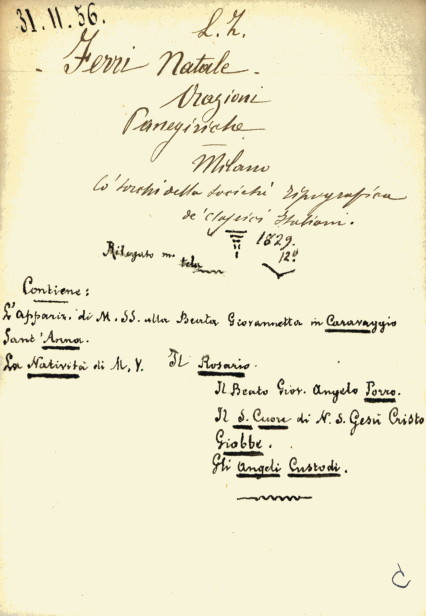 31.11.56.
L. Z.
Ferri Natale.
Orazioni
Panegiriche
Milano
Co' torchi della società tipografica
de' classici Italiani.
1829.
12º
Rilegato in tela
Contiene:
L'appariz. di M. SS. alla Beata Giovannetta in Caravaggio
Sant'Anna.
La Natività di M. V. Il Rosario.
Il Beato Giov. Angelo Porro.
Il S. Cuore di N. S. Gesù Cristo
Giobbe.
Gli Angeli Custodi.